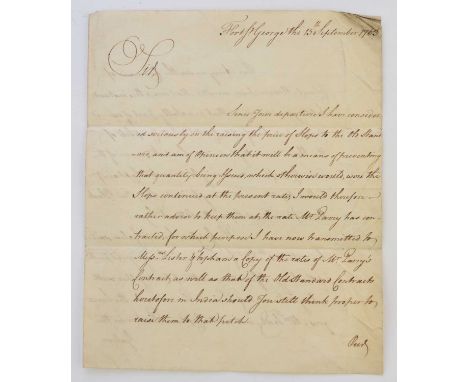 Fort St George the 13th September 1763
Sir
Since Your departure I have consider
ed seriously in the raising the price of Slops to the Old Stand
ard, and am of Opinion that it will be a means of preventing
that quantity being Issued, which otherwise would, were the
Slops continued at the present rate; I would therefore
rather advise to keep them at the rate Mr Parry has con
tracted, for which purpose I have now transmitted to
Messrs Lister & Stephan a Copy of the rates of Mr Parry's
Contract, as well as that of the Old Standard Contracts
heretofore in India should You still think proper to
raise them to that pitch